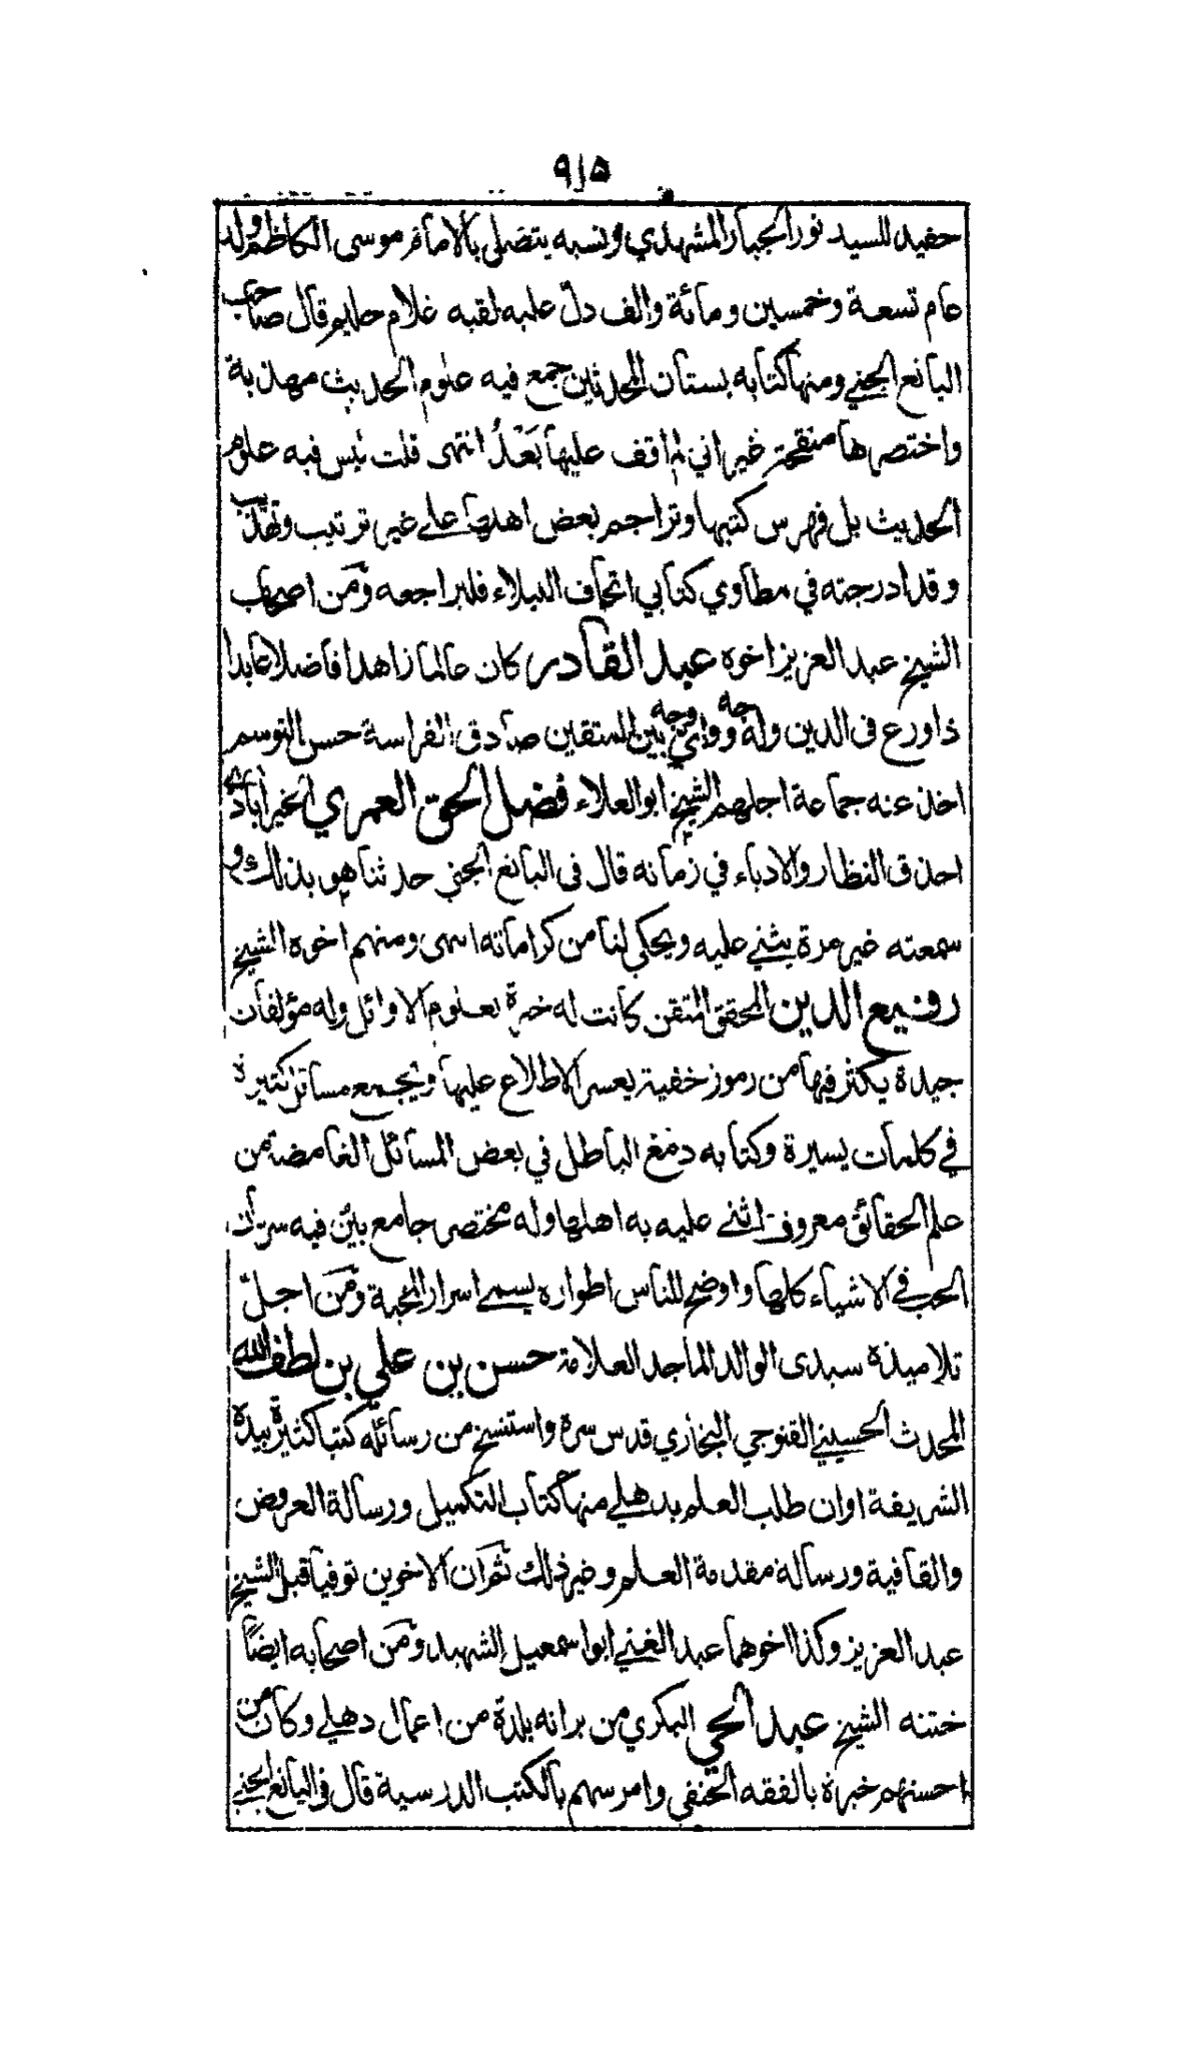 ٩١٥
حفيد للسيد نور الجبار المشهدي ونسبه يتصل بالامام موسى الكاظم ولد
عام تسعة وخمسين ومائة والف دلّ عليه لقبه غلام حليم قال صاحب
اليانع الجني ومنها كتابه بستان المحدثين جمع فيه علوم الحديث مهذبة
واختصرها منقحة غير اني لم اقف عليها بَعْدُ انتهى قلت ليس فيه علوم
الحديث بل فهرس كتبها وتراجم بعض اهلها على غير ترتيب وتهذيب
وقد ادرجته في مطاوي كتابي اتحاف النبلاء فليراجعه ومن اصحاب
الشيخ عبد العزيز اخوه عبد القادر كان عالما زاهدا فاضلا عابدا
ذا ورع في الدين وله وجه ووجه بين المتقين صادق الفراسة حسن التوسم
اخذ عنه جماعة اجلهم الشيخ ابو العلاء فضل الحق العمري الخيرآبادي
احذق النظار والادباء في زمانه قال في اليانع الجني حدثنا هو بذلك و
سمعته غير مرة يثني عليه ويحكي لنا من كراماته اسهى ومنهم اخوه الشيخ
رفيع الدين المحقق المتقن كانت له خبرة بعلوم الاوائل وله مؤلفات
جيدة يكثر فيها من رموز خفية يعسر الاطلاع عليها ويجمع مسائل كثيرة
في كلمات يسيرة وكتابه دمغ الباطل في بعض المسائل الغامضة من
علم الحقائق معروف اثنى عليه به اهلها وله مختصر جامع بيّن فيه سريان
الحب في الاشياء كلها واوضح للناس اطواره يسمى اسرار المحبة ومن اجلّ
تلاميذه سيدى الوالد الماجد العلامة حسن بن علي بن لطف الله
المحدث الحسيني القنوجي البخاري قدس سره واستنسخ من رسائله كتبا كثيرة بيده
الشريفة اوان طلب العلم بدهلي منها كتاب التكميل ورسالة العروض
والقافية ورسالة مقدمة العلم وغير ذلك ثم ان الاخوين توفيا قبل الشيخ
عبد العزيز وكذا اخوهما عبد الغني ابو اسمعيل الشهيد ومن اصحابه ايضاً
ختنه الشيخ عبد الحي البكري من برانه بلدة من اعمال دهلي وكان من
احسنهم خبرة بالفقه الحنفي وامرسهم بالكتب الدرسية قال في اليانع الجني